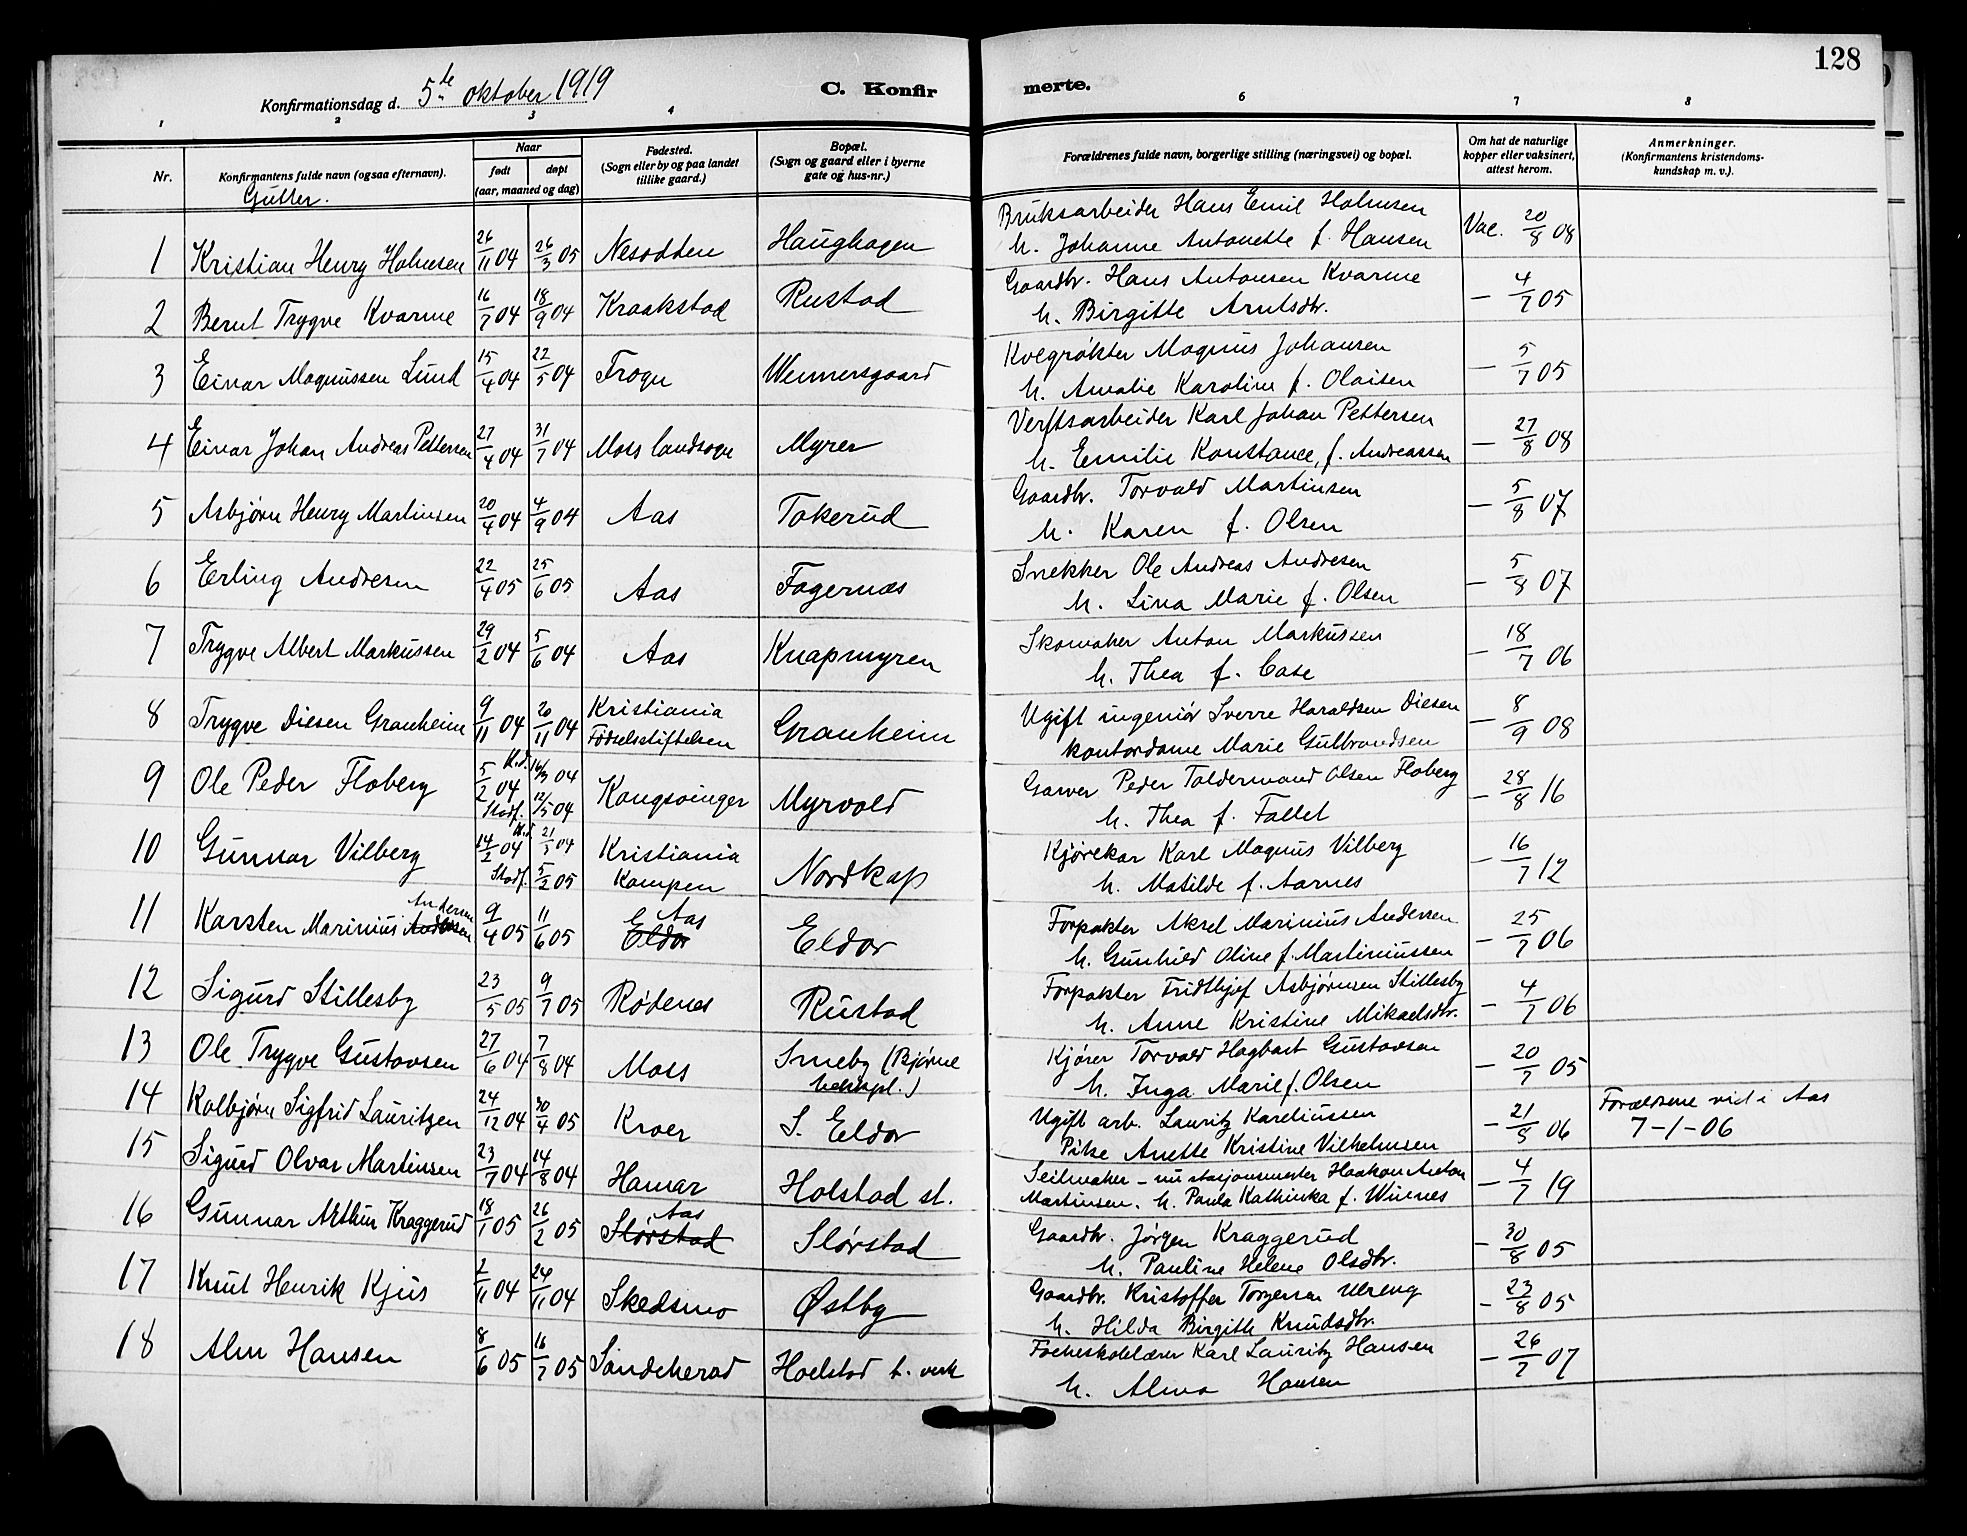 128
Konfirmationsdag d. 5te oktober 1919
C. Konfir merte.
1 2 3 4 6 7 8
Nr.
Konfirmantens fulde navn (ogsaa efternavn).
Naar
født
døpt
(aar, maaned og dag)
Fødested.
(Sogn eller by og paa landet
tillike gaard.)
Bopæl.
(Sogn og gaard eller i byerne
gate og hus-nr.)
Forældrenes fulde navn, borgerlige stilling (næringsvei) og bopæl.
Om hat de naturlige
kopper eller vaksinert,
attest herom.
Anmerkninger.
(Konfirmantens kristendoms-
kundskap m. v.).
Gutter.
1 Kristian Henry Holmsen 26/11 04 26/3 05 Nesodden Haughagen Bruksarbeider Hans Emil Holmsen Vac. 20/8 08
h. Johanne Antonette f. Hansen
2 Bernt Trygve Kvarme 16/7 04 18/9 04 Kraakstad Rustad Gaardbr. Hans Antonsen Kvarme - 4/7 05
h. Birgitte Arntsdtr.
3 Einar Magnussen Lund 15/4 04 22/5 04 Frogn Wennersgaard Kvegrøkter Magnus Johansen - 5/7 05
h. Amalie Karoline f. Olaisen
4 Einar Johan Andreas Pettersen 27/4 04 31/7 04 Moss landsogn Myrer Verftsarbeider Karl Johan Pettersen - 27/8 08
h. Emilie Konstance, f. Andreassen
5 Asbjørn Henry Martinsen 20/4 04 4/9 04 Aas Tokerud Gaardbr. Torvald Martinsen - 5/8 07
h. Karen f. Olsen
6 Erling Andresen 22/4 05 25/6 05 Aas Fagernæs Snekker Ole Andreas Andresen - 5/8 07
h. Lina Marie f. Olsen
7 Trygve Albert Markussen 29/2 04 5/6 04 Aas Knapmyren Skomaker Anton Markussen - 18/7 06
h. Thea f. Case
8 Trygve Diesen Granheim 9/11 04 20/11 04 Kristiania Granheim Ugift ingeniør Sverre Haraldsen Diesen - 8/9 08
Fødselsstiftelsen kontordame Marie Gulbrandsen
9 Ole Peder Floberg 5/2 04 H.d. 16/3 04 Kongsvinger Myrvold Garver Peder Toldermand Olsen Floberg - 28/8 16
Stadf. 12/5 04 h. Thea f. Fallet
10 Gunnar Vilberg 14/2 04 H.d. 04 Kristiania Nordkap Kjørekar Karl Magnus Vilberg - 16/7 12
Stadf. 5/2 05 Kampen h. Matilde f. Aarnes
11 Karsten Marinius Andersen 9/4 05 11/6 05 Aas Eldor Eldor Forpakter Aksel Marinius Andersen - 25/7 06
h. Gunhild Oline f. Martiniussen
12 Sigurd Stillesby 23/5 05 9/7 05 Rødenes Rustad Forpakter Fridthjof Asbjørnsen Stillesby - 4/7 06
h. Anne Kristine Mikaelsdtr.
13 Ole Trygve Gustavsen 27/6 04 7/8 04 Moss Smeby (Bjørne Kjører Torvald Hagbart Gustavsen - 20/7 05
h. Inga Marie f. Olsen
14 Kolbjørn Sigfrid Lauritzen 24/12 04 30/4 05 Kroer S. Eldor Ugift arb. Lauritz Kareliussen - 21/8 06 Forældrene vid i Aas
Pike Anette Kristine Vilhelmsen 7-1-06
15 Sigurd Olvar Martinsen 23/7 04 14/8 04 Hamar Holstad st. Seilmaker - nu stasjonsmester Haakon Anton - 4/7 19
Martinsen. h. Paula Kathinka f. Winnes
16 Gunnar Arthur Kraggerud 18/1 05 26/2 05 Aas Slørstad Slørstad Gaardbr. Jørgen Kraggerud - 30/8 05
h. Pauline Helene Olsdtr.
17 Knut Henrik Kjus 2/11 04 24/11 04 Skedsmo Østby Gaardbr. Kristoffer Torgersen Ulreng - 23/8 05
h. Hilda Birgitte Knudsdtr.
18 Alm Hansen 8/6 05 16/7 05 Sandeherad Holstad t. verk Folkeskolelærer Karl Lauritz Hansen - 26/7 07
h. Alma Hansen